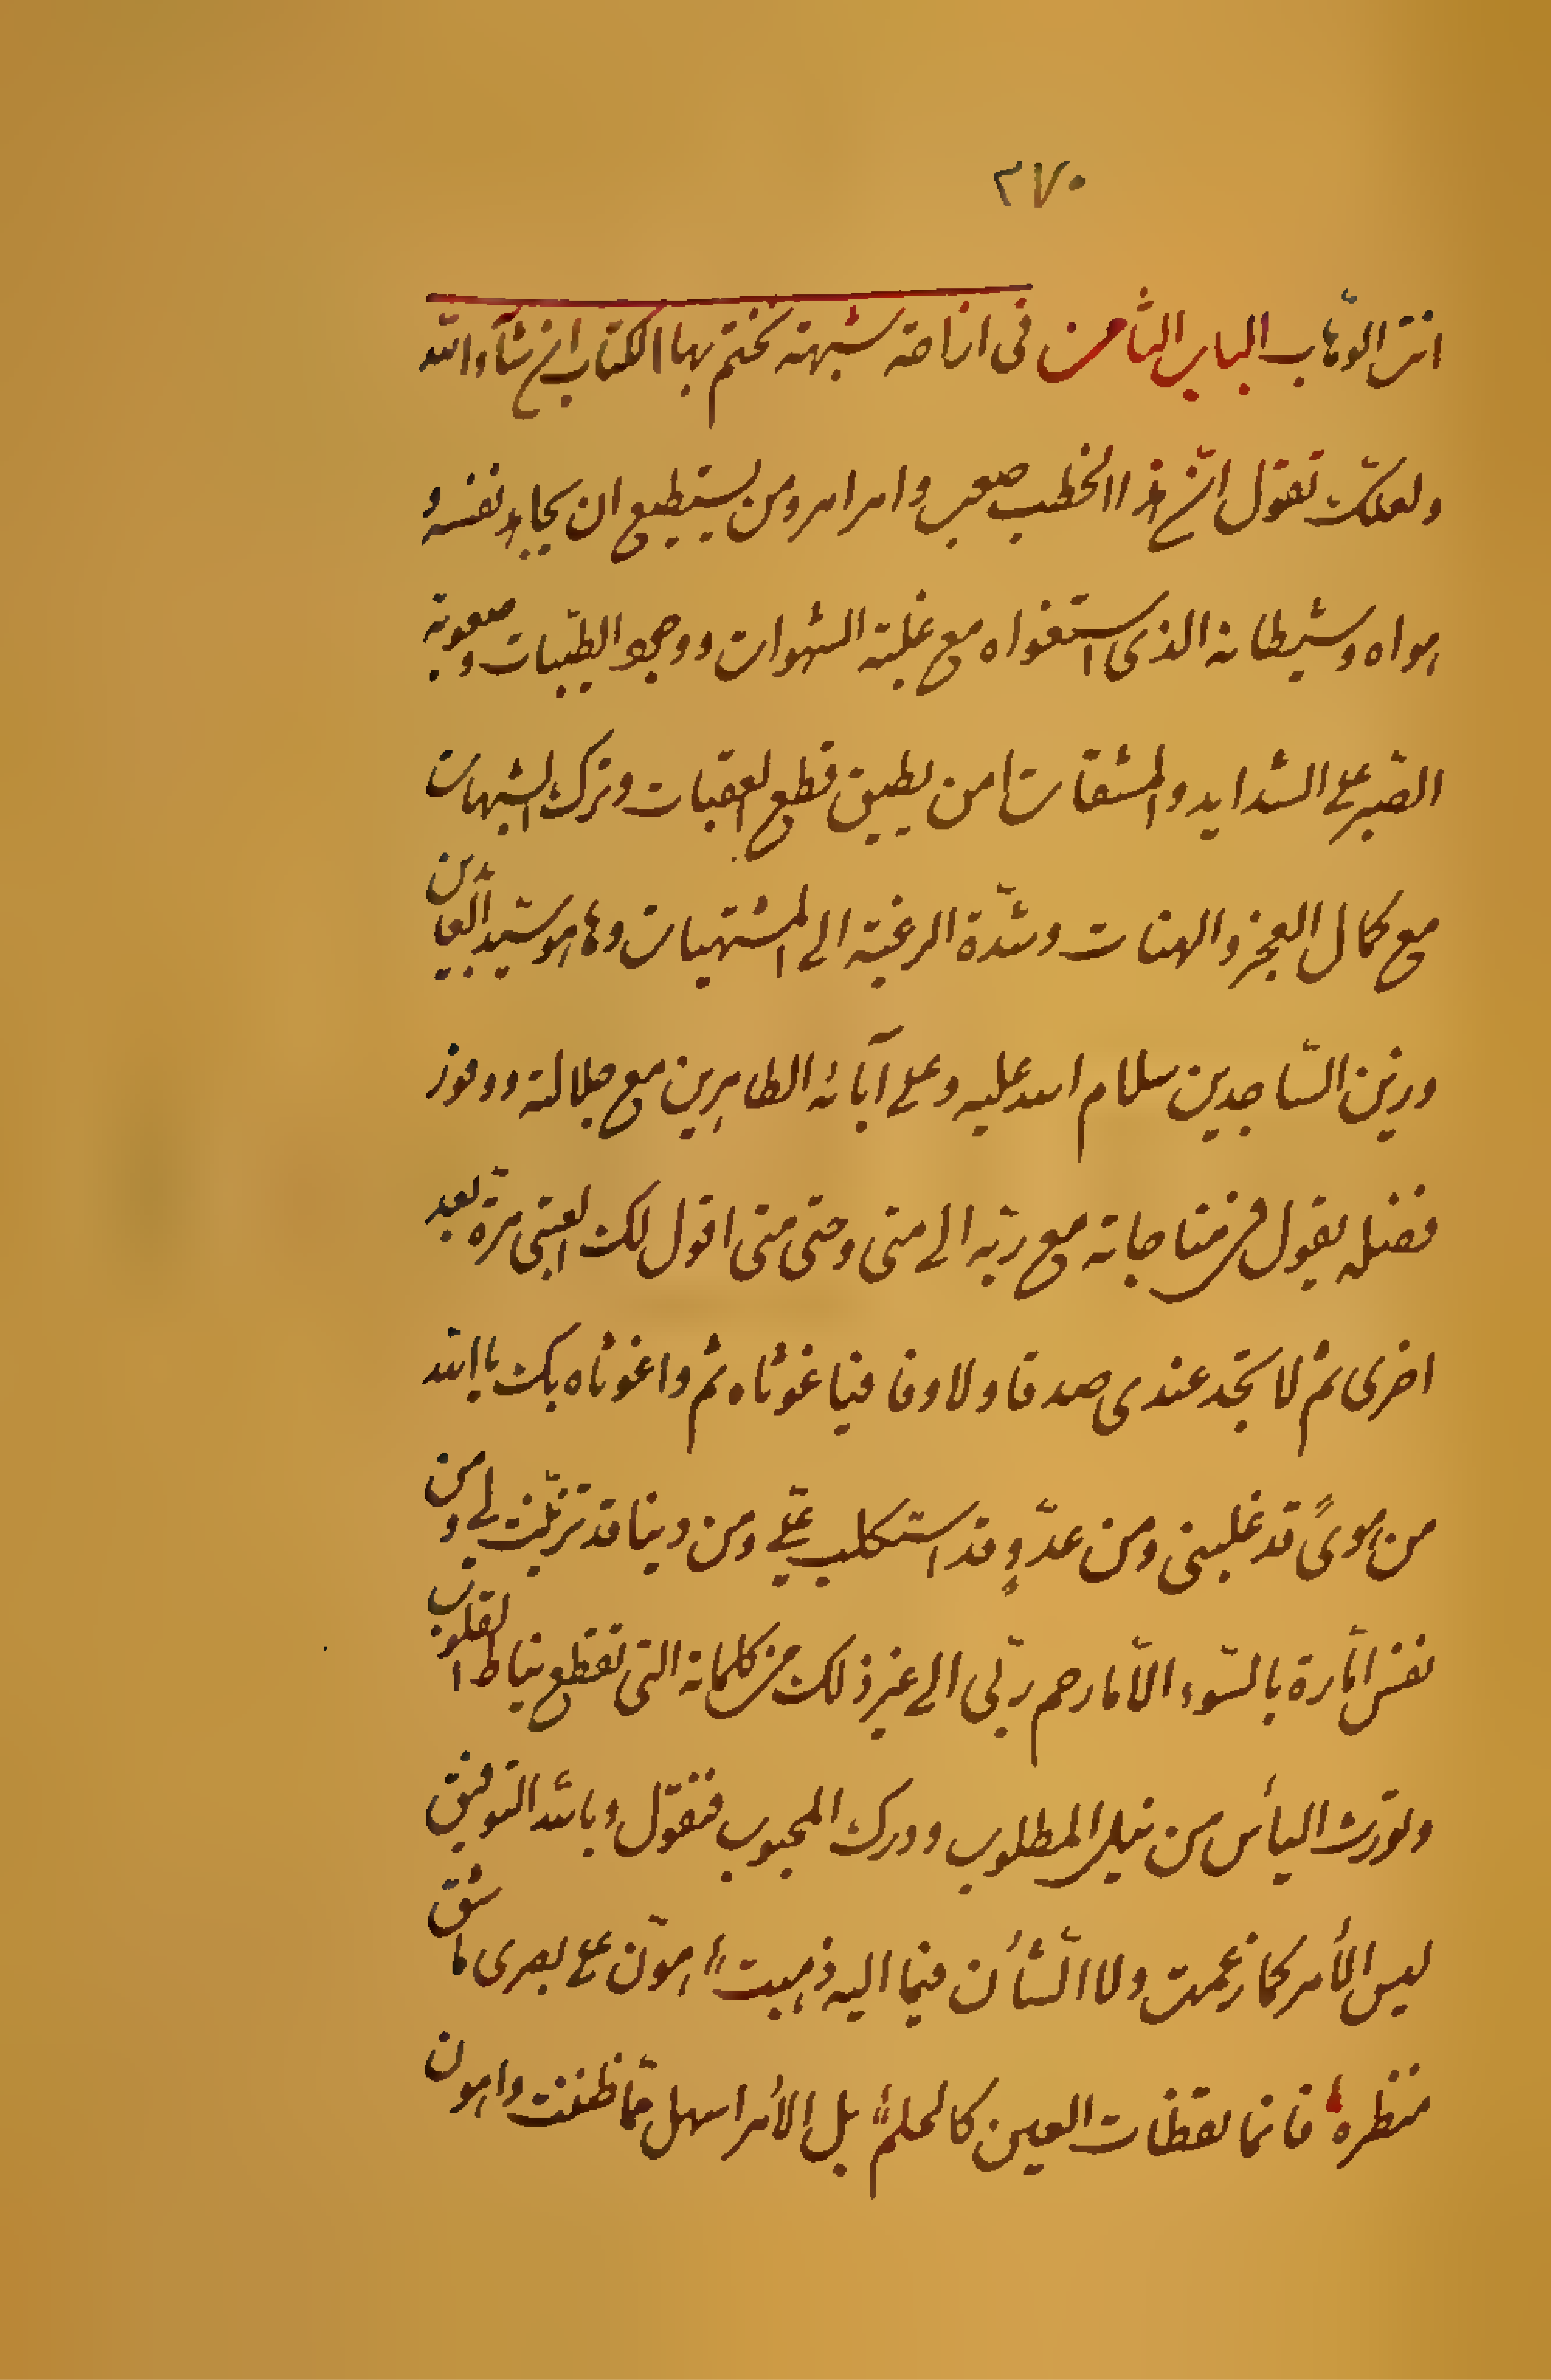 ٢٧٠
انت الوهّاب الباب الثامن فى ازاحة شبهة نختم بها الكتاب ان شآء الله
ولعلّك تقول انّ هذا الخطب صعب وامر امر ومن يستطيع ان يجاهد نفسهُ
هواه وشيطانه الذى استغواه مع غلبة الشهوات ووجود الطيّبات وصعوبة
الصّبر على الشدايد والمشقات امن يطيق قطع العقبات وترك الشبهات
مع كمال العجز والهنات وشدّة الرغبة الى المشتهيات وها هو سيّد العابدين
وزين السّاجدين سلام الله عليه وعلى آبائه الطاهرين مع جلالته ووفوز
فضله يقول فى مناجاته مع ربّه الى متى وحتى متى اقول لك العتبى مرة بعد
اخرى ثم لا تجد عندى صدقا ولا وفا فيا غوثاه ثم واغوثاه بك يا الله
من هوىً قد غلبنى ومن عدّوٍ قد استكلب علىّ ومن دنيا قد تزيّنت لى ومن
نفس امّارة بالسّوء الّا ما رحم ربّى الى غير ذلك من كلماته التى تقطع نياط القلوب
وتورث اليأس من نيل المطلوب ودرك المحبوب فنقول وبالله التوفيق
ليس الأمر كما زعمت ولا الشأن فيما اليه ذهبت هوّن على بصرى ما شق
منظره فانما يقظات العين كالحلم بل الأمر اسهل ممّا ظننت واهون